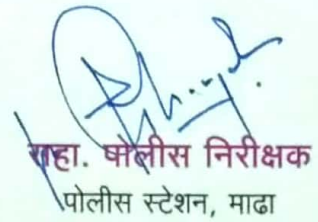 सहा. पोलीस निरीक्षक
पोलीस स्टेशन, माढा